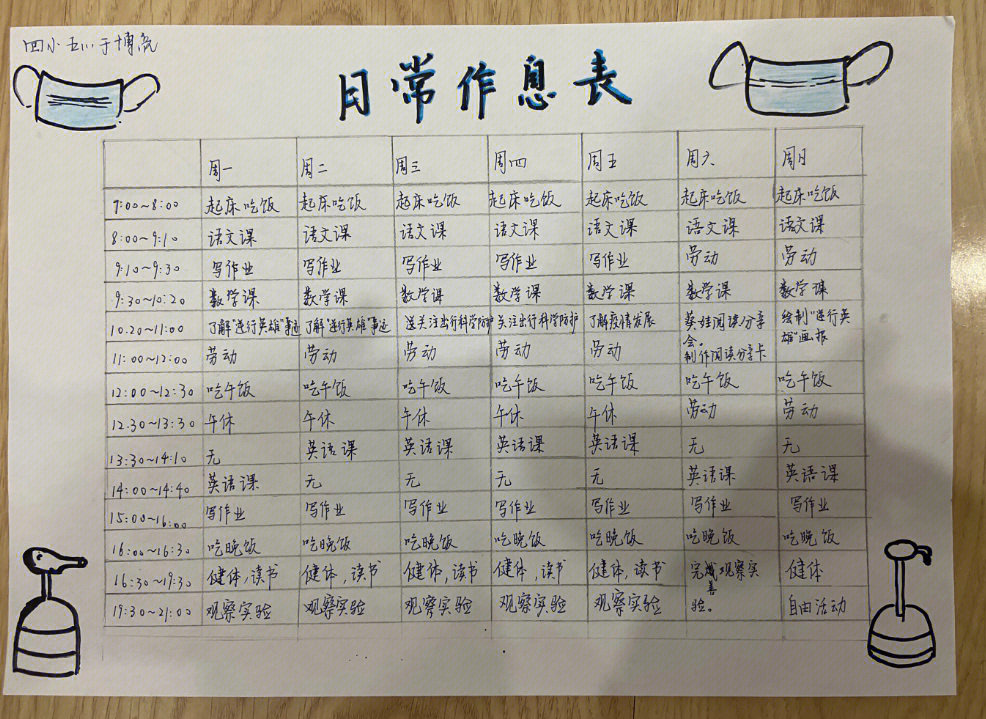 四小五八于博亮
日常作息表
周一 周二 周三 周四 周五 周六 周日
7:00~8:00 起床吃饭 起床吃饭 起床吃饭 起床吃饭 起床吃饭 起床吃饭 起床吃饭
8:00~9:10 语文课 语文课 语文课 语文课 语文课 语文课 语文课
9:10~9:30 写作业 写作业 写作业 写作业 写作业 劳动 劳动
9:30~10:20 数学课 数学课 数学课 数学课 数学课 数学课 数学课
10:20~11:00 了解"逆行英雄"事迹 了解"逆行英雄"事迹 关注出行科学防护 关注出行科学防护 了解疫情发展 英娃阅读分享 绘制"逆行英
会。 雄"画报
11:00~12:00 劳动 劳动 劳动 劳动 劳动 制作阅读分享卡
12:00~12:30 吃午饭 吃午饭 吃午饭 吃午饭 吃午饭 吃午饭 吃午饭
12:30~13:30 午休 午休 午休 午休 午休 劳动 劳动
13:30~14:10 无 英语课 英语课 英语课 英语课 无 无
14:00~14:40 英语课 无 无 无 无 英语课 英语课
15:00~16:00 写作业 写作业 写作业 写作业 写作业 写作业 写作业
16:00~16:30 吃晚饭 吃晚饭 吃晚饭 吃晚饭 吃晚饭 吃晚饭 吃晚饭
16:30~19:30 健体,读书 健体,读书 健体,读书 健体,读书 健体,读书 完善观察实 健体
19:30~21:00 观察实验 观察实验 观察实验 观察实验 观察实验 验。 自由活动